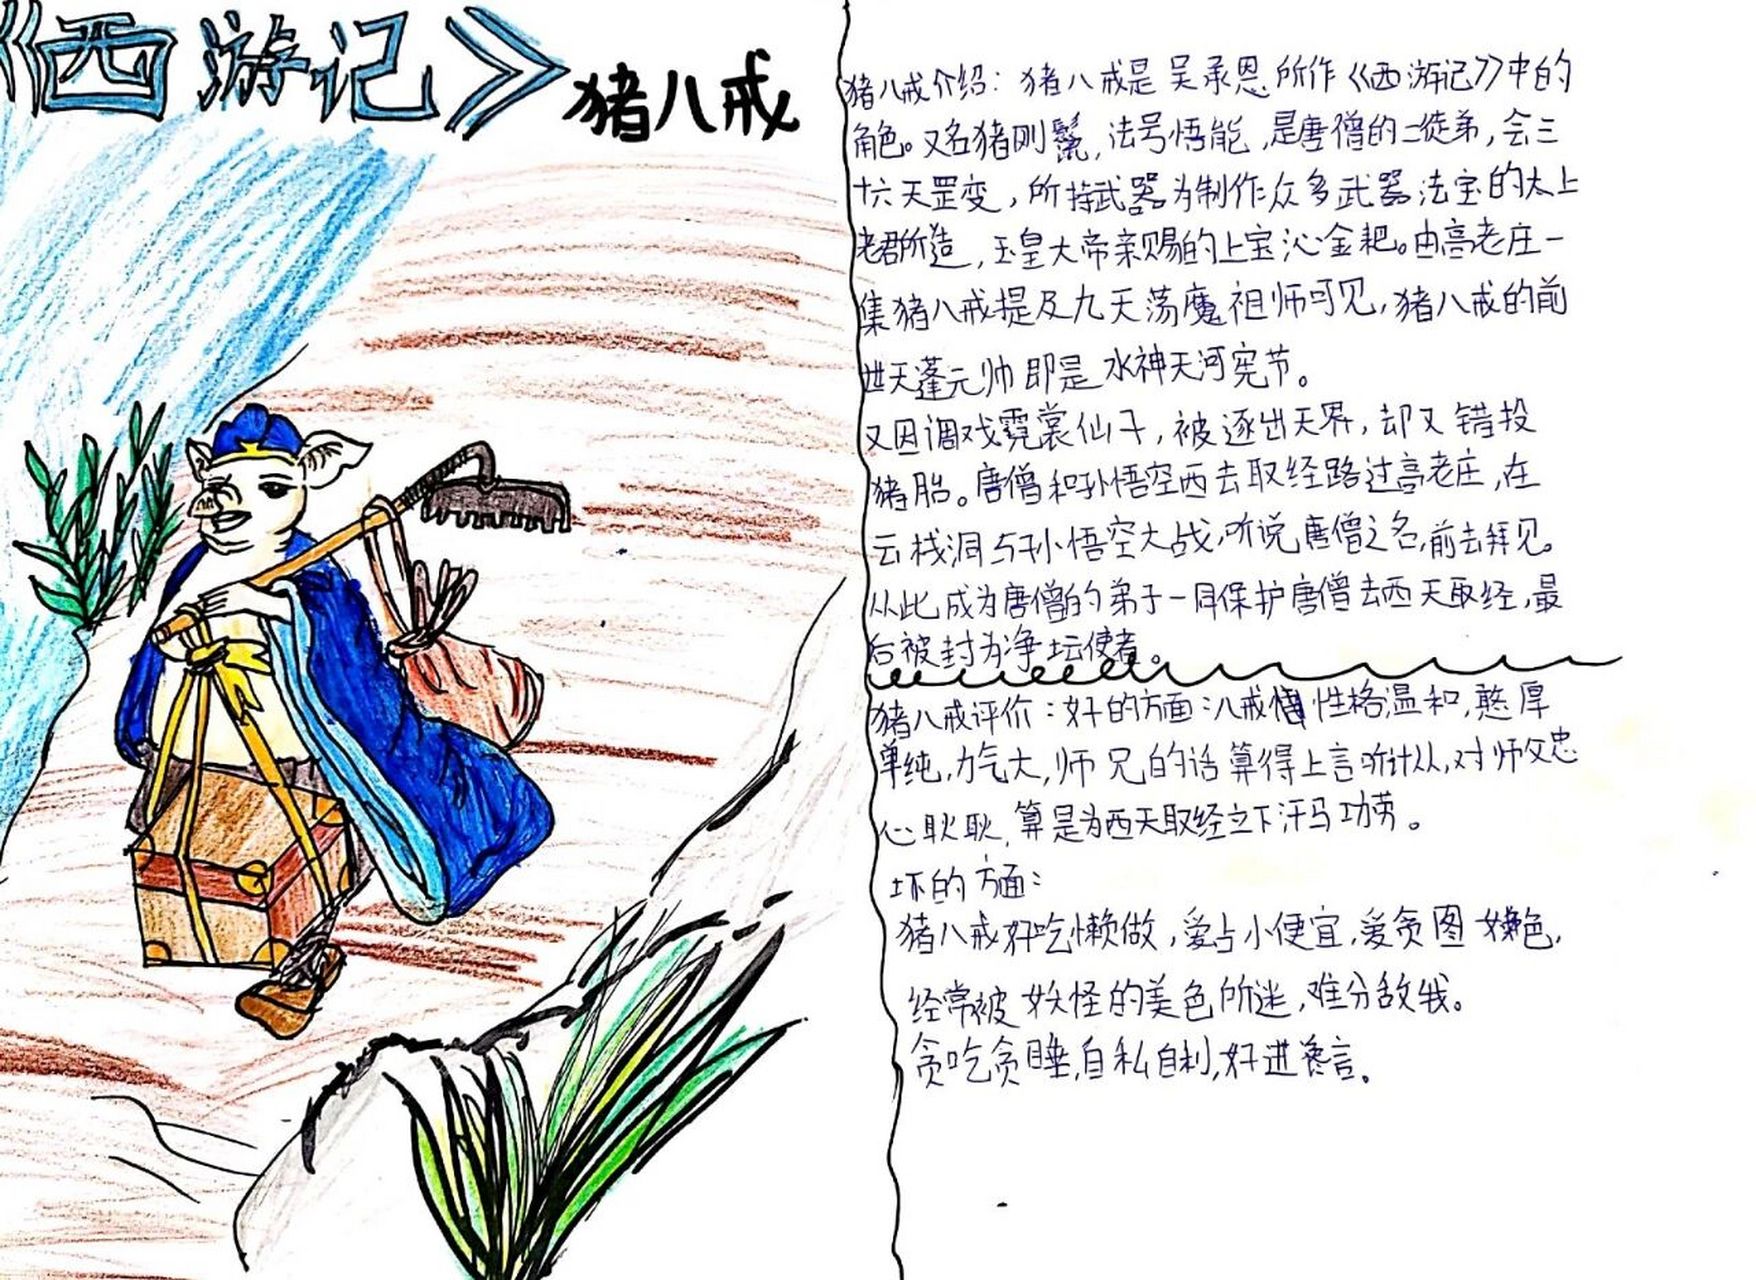 《西游记》猪八戒
猪八戒介绍：猪八戒是吴承恩所作《西游记》中的
角色。又名猪刚鬣，法号悟能，是唐僧的二徒弟，会三
十六天罡变，所持武器为制作众多武器法宝的太上
老君所造，玉皇大帝亲赐的上宝沁金耙。由高老庄一
集猪八戒提及九天荡魔祖师可见，猪八戒的前
世天蓬元帅即是水神天河宪节。
又因调戏霓裳仙子，被逐出天界，却又错投
猪胎。唐僧和孙悟空西去取经路过高老庄，在
云栈洞与孙悟空大战，听说唐僧之名，前去拜见。
从此成为唐僧的弟子一同保护唐僧去西天取经，最
后被封为净坛使者。
猪八戒评价：好的方面：八戒性格温和，憨厚
单纯，力气大，师兄的话算得上言听计从，对师父忠
心耿耿，算是为西天取经之下汗马功劳。
坏的方面：
猪八戒好吃懒做，爱占小便宜，爱贪图女色，
经常被妖怪的美色所迷，难分敌我。
贪吃贪睡，自私自利，好进谗言。